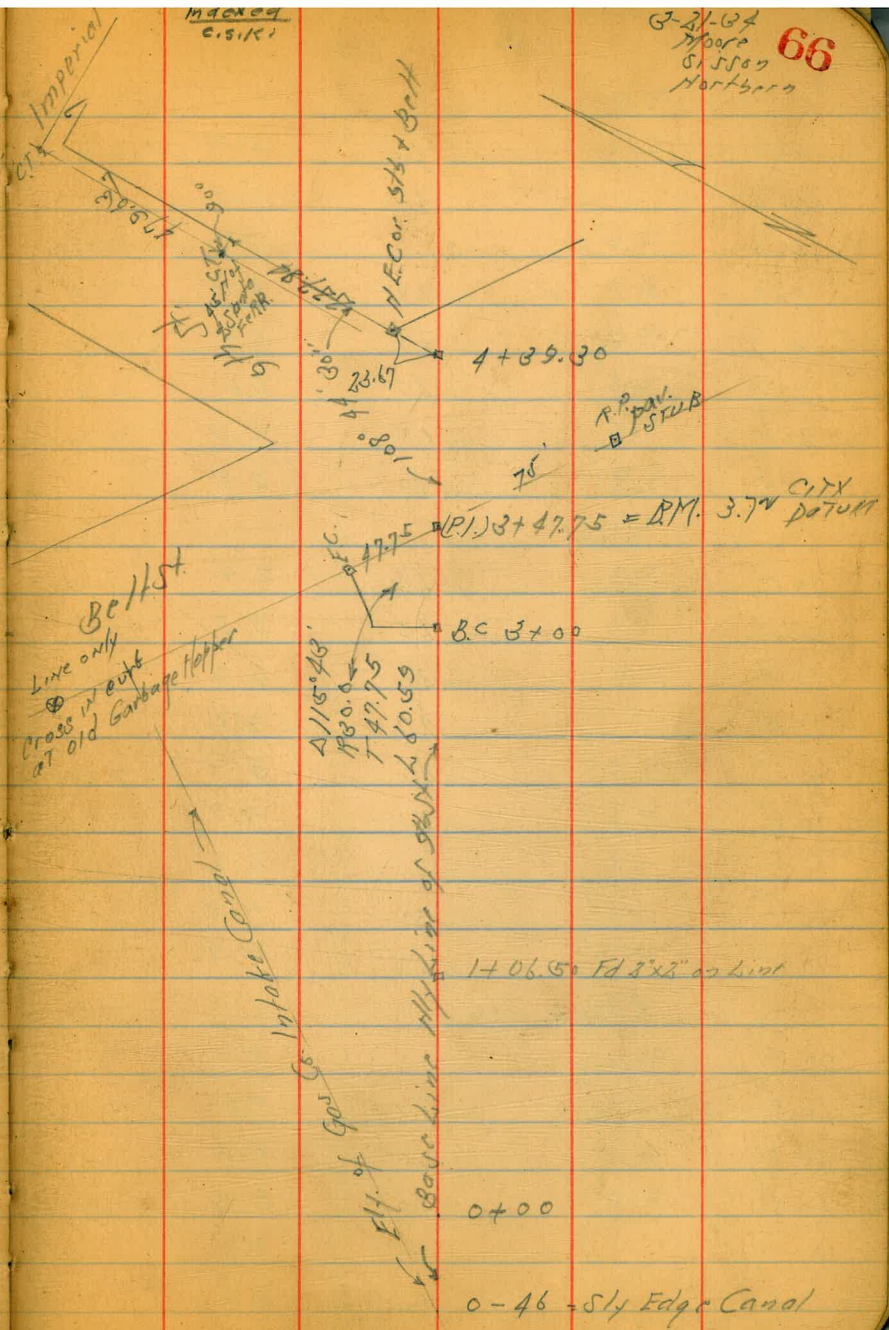 Indexed
C.S.K.
3-21-34
Moore
Sisson
Northern
66
Imperial
C.T.
479.62
90°
St.
427.84
N.E. Cor. 5th & Belt
23.67
4+39.30
108° 44' 30"
R.P. pav.
STUB
75'
(P.I.) 3+47.75 = B.M. 3.72 CITY
DATUM
E.C.
47.75
B.C 3+00
Belt St.
Line only
Cross in
at old Garbage Hopper
Δ 115°43'
R 30.0
T 47.75
L 60.59
Intake Canal
Ely. of Gas Co.
Base Line Nly Line of
1+06.50 Fd 2"x2" on Line
0+00
0-46 = Sly Edge Canal